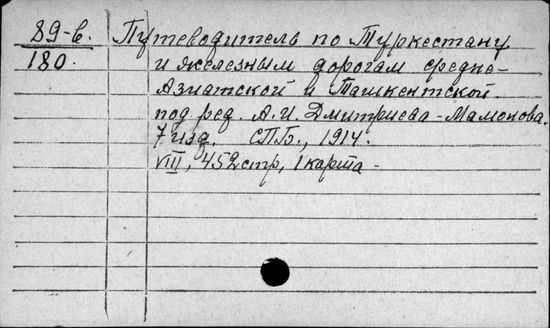 89-в. Путеводитель по Туркестану
180. и железным дорогам средне-
Азиатской и Ташкентской
под ред. А. И. Дмитриева-Мамонова.
7 изд. СПБ., 1914.
VIII, 452 стр, 1 карта -